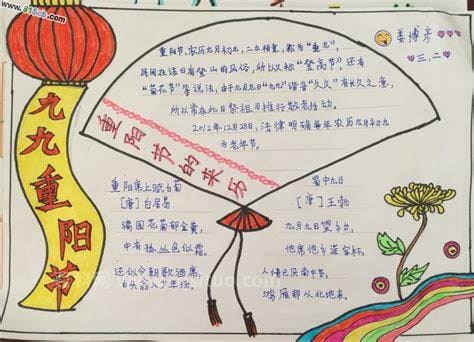 www.818cb.com
九九重阳节
姜博彦
三、二
重阳节,农历九月初九,二九相重,称为"重九",
民间在该日有登山的风俗,所以又称"登高节",还有
"菊花节"等说法,由于九月九日"九九"谐音"久久"有长久之意,
所以常在此日祭祖与推行敬老活动。
2012年12月28日,法律明确每年农历九月初九
为老年节。
重阳节的来历
重阳席上赋白菊
[唐]白居易
满园花菊郁金黄,
中有孤丛色似霜。
还似今朝歌酒席,
白头翁入少年场。
蜀中九日
[唐]王勃
九月九日望乡台,
他席他乡送客杯。
人情已厌南中苦,
鸿雁那从北地来。